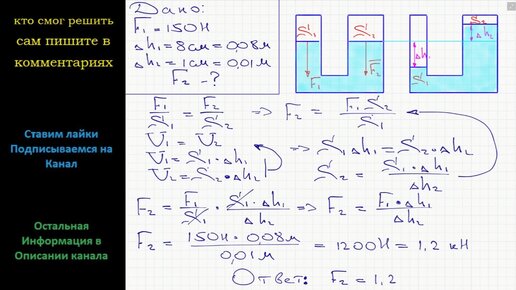 кто смог решить
сам пишите в
комментариях
Ставим лайки
Подписываемся на
Канал
Остальная
Информация в
Описании канала
Дано:
F₁ = 150Н
Δh₁ = 8см = 0,08м
Δh₂ = 1см = 0,01м
F₂ - ?
S₁ S₂ S₂
Δh₂
Δh₁
F₁ F₂ S₁
F₁/S₁ = F₂/S₂ => F₂ = F₁·S₂/S₁
V₁ = V₂
V₁ = S₁·Δh₁ => S₁Δh₁ = S₂·Δh₂
V₂ = S₂·Δh₂ S₂ = S₁·Δh₁/Δh₂
F₂ = F₁/S₁ · S₁·Δh₁/Δh₂ => F₂ = F₁·Δh₁/Δh₂
F₂ = 150Н·0,08м/0,01м = 1200Н = 1,2 кН
Ответ: F₂ = 1,2